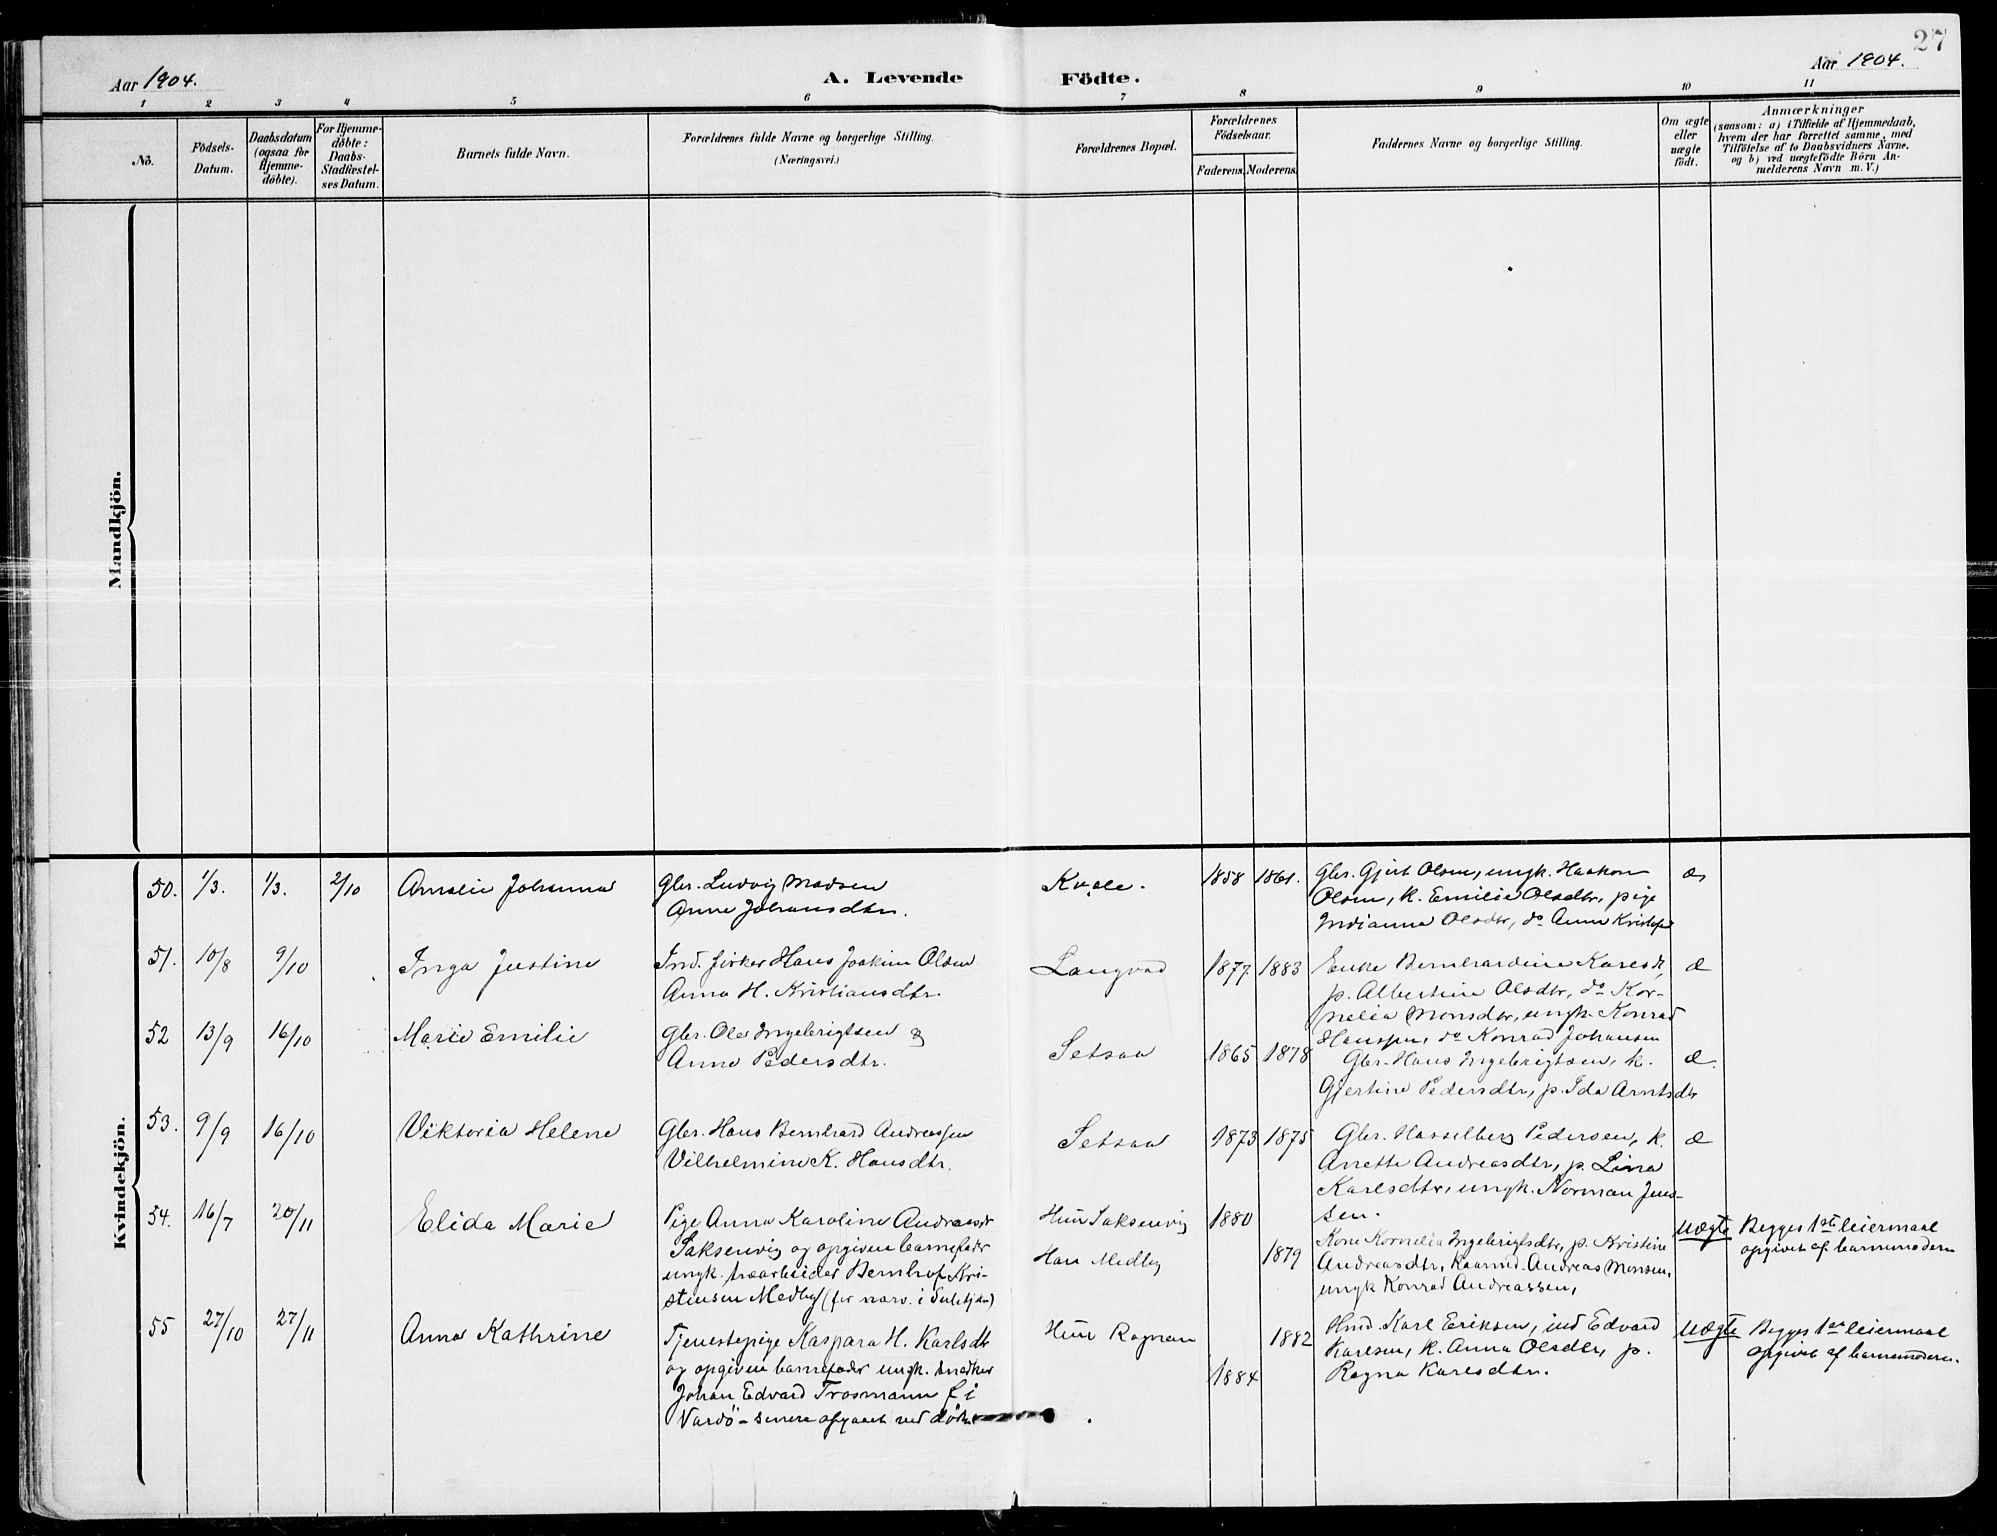 27
Aar 1904.
A. Levende Födte.
Aar 1904.
1 2 3 4 5 6 7 8 9 10 11
No.
Födsels-
Datum.
Daabsdatum
(ogsaa for
Hjemme-
döbte).
For Hjemme-
döbte:
Daabs-
Stadfæstel-
ses Datum.
Barnets fulde Navn.
Forældrenes fulde Navne og borgerlige Stilling.
(Næringsvei.)
Forældrenes Bopæl.
Forældrenes
Födselsaar.
Faderens. Moderens.
Faddernes Navne og borgerlige Stilling.
Om ægte
eller
uægte
födt.
Anmærkninger
(saasom: a) i Tilfælde af Hjemmedaab,
hvem der har forrettet samme, med
Tilföielse af to Daabsvidners Navne,
og b) ved uægtefödte Börn An-
melderens Navn m. V.)
Mandkjön.
Kvindekjön.
50. 1/3. 1/3. 2/10 Amalie Johanna
Gbr. Ludvig Madsen
Anne Johansdtr.
Kvæle.
1858 1861.
Gbr. Gjert Olsen, ungk. Haakon
Olsen, k. Emilie Olsdtr, pige
Indianna Olsdtr, do Anna
æ
51. 10/8 9/10
Inga Justine
Ind. fisker Hans Joakim Olsen
Anna H. Kristiansdtr.
Langvad
1877. 1883
Enke Bernhardine Karlsdt,
p. Albertine Olsdtr, do Kor-
nelia Monsdtr, ungk. Konrad
Hanssen, do Konrad Johansen
æ
52 13/9 16/10
Marie Emilie
Gbr. Ole Ingebrigtsen &
Anne Pedersdtr.
Setsaa
1865 1878
Gbr. Hans Ingebrigtsen, k.
Gjertine Pedersdtr, p. Ida Arntsdtr
æ.
53. 9/9 16/10
Viktoria Helene
Gbr. Hans Bernhard Andreassen
Vilhelmine K. Hansdtr.
Setsaa
1873 1875
Gbr. Hasselberg Pedersen, k.
Anette Andreasdtr, p. Lina
Karlsdtr, ungk. Norman Jens-
sen.
æ
54. 16/7 20/11
Elida Marie
Pige Anna Karoline Andreasdtr
Saksenvig og opgiven barnefader
ungk. træarbeider Bernhof Kri-
stensen Medby (for narv. i Sulitjen)
Hun Saksenvig
Han Medby
1880
1879
Kone Kornelia Ingebrigtsdtr, p. Kristine
Andreasdtr, Kaarmd. Andreas Monsen,
ungk Konrad Andreassen,
uægte
Begges 1ste leiermaal
opgivet af barnemoderen
55 27/10 27/11
Anna Kathrine
Tjenestepige Kaspara H. Karlsdtr
og opgiven barnefader ungk. snedker
Johan Edvard Trosmann f i
Vardö – senere afgaaet ved döden
Hun Rognan
1882
1884
Hmd. Karl Eriksen, ind Edvard
Karlsen, k. Anna Olsdtr, p.
Ragna Karlsdtr.
uægte
Begges 1ste leiermaal
opgivet af barnemoderen.